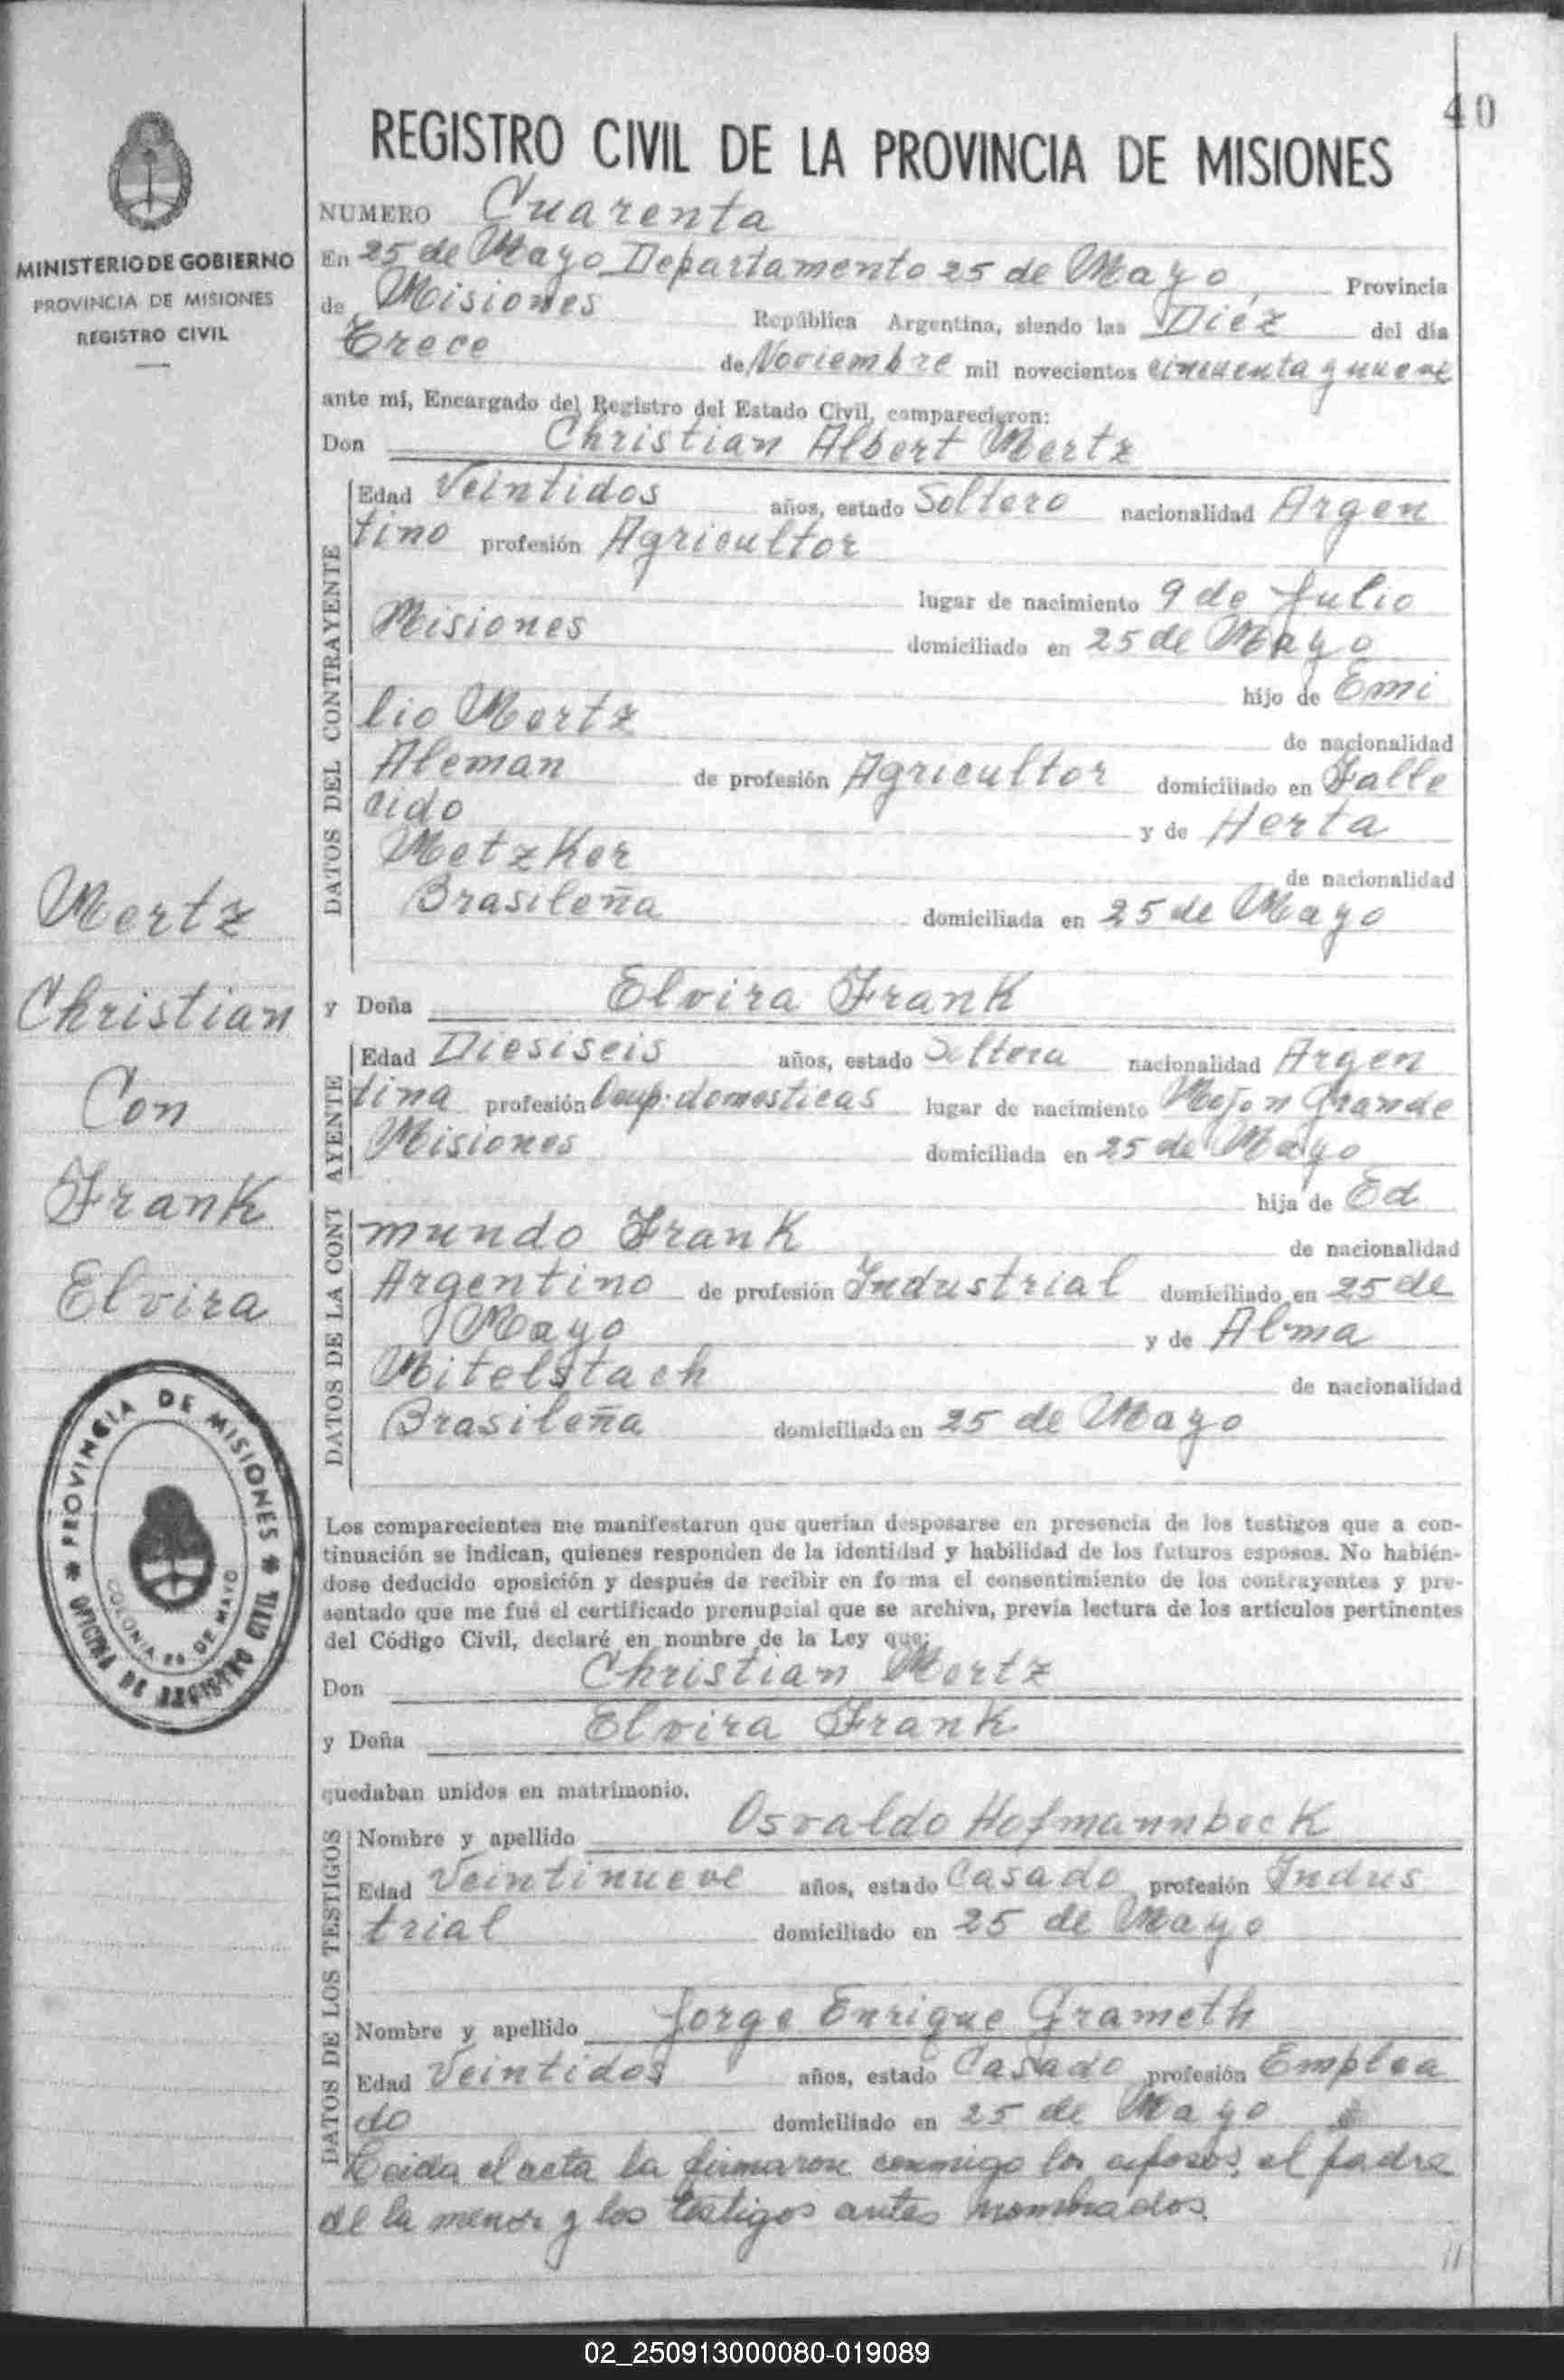 40
REGISTRO CIVIL DE LA PROVINCIA DE MISIONES
MINISTERIO DE GOBIERNO
PROVINCIA DE MISIONES
REGISTRO CIVIL
NUMERO Cuarenta
En 25 de Mayo Departamento 25 de Mayo, Provincia
de Misiones República Argentina, siendo las Diez del día
Trece de Noviembre mil novecientos cincuenta y nueve
ante mí, Encargado del Registro del Estado Civil, comparecieron:
Don Christian Albert Mertz
DATOS DEL CONTRAYENTE
Edad Veintidos años, estado Soltero nacionalidad Argen
tino profesión Agricultor
lugar de nacimiento 9 de Julio
Misiones domiciliado en 25 de Mayo
hijo de Emi
lio Mertz de nacionalidad
Aleman de profesión Agricultor domiciliado en Falle
cido y de Herta
Metzker de nacionalidad
Brasileña domiciliada en 25 de Mayo
Mertz
Christian
Con
Frank
Elvira
y Doña Elvira Frank
DATOS DE LA CONT AYENTE
Edad Diesiseis años, estado Soltera nacionalidad Argen
tina profesión Ocup. domesticas lugar de nacimiento Mojon Grande
Misiones domiciliada en 25 de Mayo
hija de Ed
mundo Frank de nacionalidad
Argentino de profesión Industrial domiciliado en 25 de
Mayo y de Alma
Mitelstach de nacionalidad
Brasileña domiciliada en 25 de Mayo
PROVINCIA DE MISIONES
OFICINA DE REGISTRO CIVIL
COLONIA 25 DE MAYO
Los comparecientes me manifestaron que querían desposarse en presencia de los testigos que a con-
tinuación se indican, quienes responden de la identidad y habilidad de los futuros esposos. No habién-
dose deducido oposición y después de recibir en fo ma el consentimiento de los contrayentes y pre-
sentado que me fué el certificado prenupcial que se archiva, previa lectura de los artículos pertinentes
del Código Civil, declaré en nombre de la Ley que:
Don Christian Mertz
y Doña Elvira Frank
quedaban unidos en matrimonio.
DATOS DE LOS TESTIGOS
Nombre y apellido Osvaldo Hofmannbeck
Edad Veintinueve años, estado Casado profesión Indus
trial domiciliado en 25 de Mayo
Nombre y apellido Jorge Enrique Grameth
Edad Veintidos años, estado Casado profesión Emplea
do domiciliado en 25 de Mayo
Leida el acta la firmaron conmigo los esposos, el padre
de la menor y los testigos antes nombrados
//
02_250913000080-019089